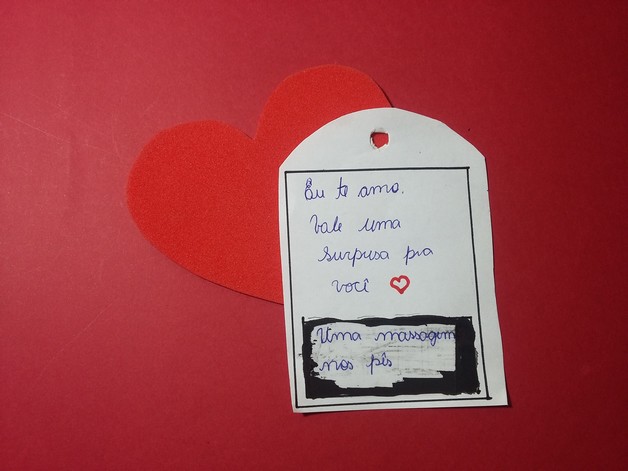 Eu te amo.
Vale uma
surpresa pra
você
Uma massagem
nos pés